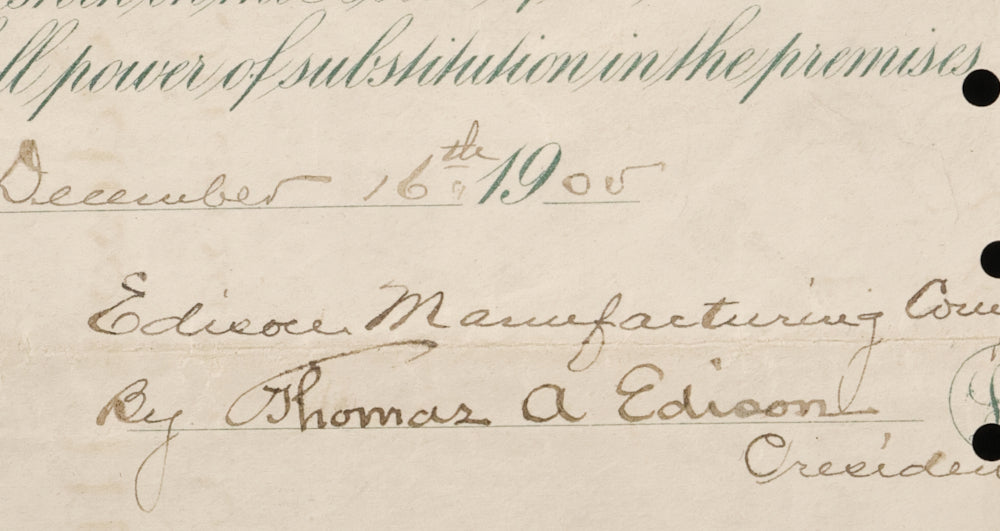 ll power of substitution in the premises
December 16th 1900
Edison Manufacturing Com
By Thomas A Edison
Presiden